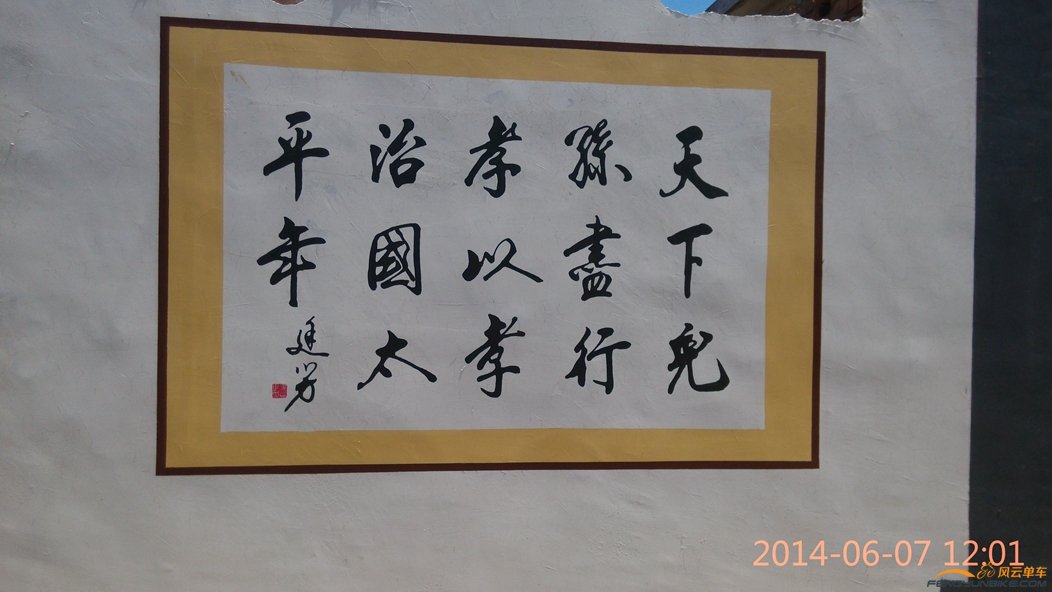 天下兒
孫盡行
孝以孝
治國太
平年
2014-06-07 12:01
风云单车
FENGYUNBIKE.COM